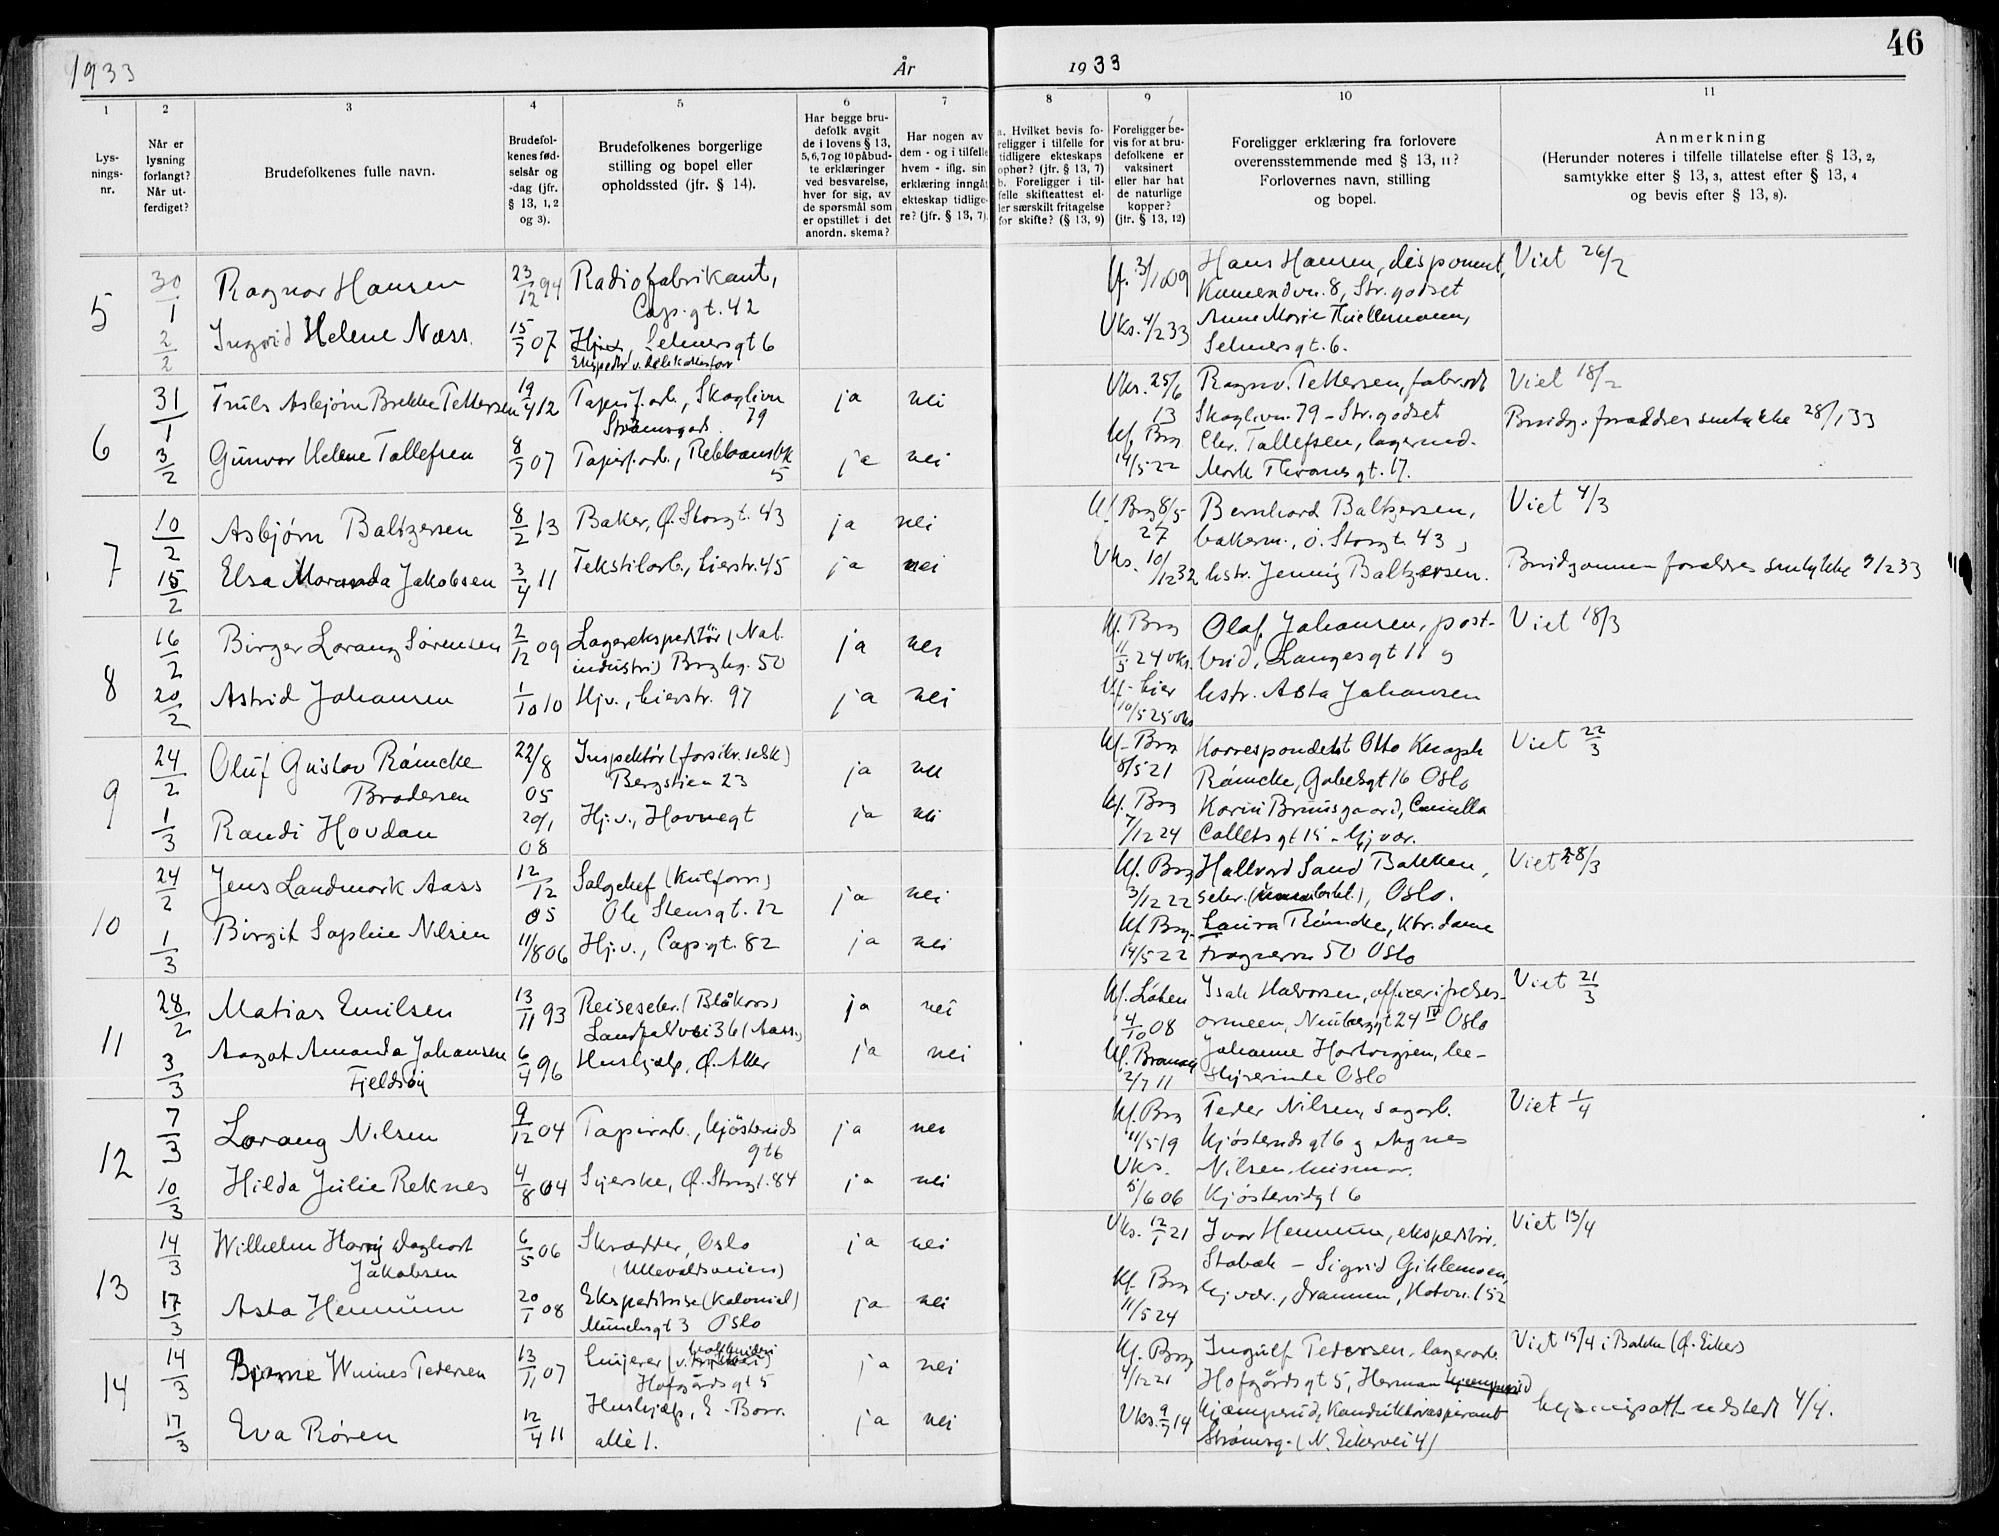 46
1933
År
1933
1
2
3
4
5
6
7
8
9
10
11
Lysnings-nr.
Når er lysning forlangt? Når utferdiget?
Brudefolkenes fulle navn.
Brudefolkenes fødselsår og -dag (jfr. § 13, 1, 2 og 3).
Brudefolkenes borgerlige stilling og bopel eller opholdssted (jfr. § 14).
Har begge brudefolk avgit de i lovens § 13, 5, 6, 7 og 10 påbudte erklæringer ved besvarelse, hver for sig, av de spørsmål som er opstillet i det anordn. skema?
Har nogen av dem - og i tilfelle hvem - iflg. sin erklæring inngått ekteskap tidligere? (jfr. § 13, 7).
a. Hvilket bevis foreligger i tilfelle for tidligere ekteskaps ophør? (jfr. § 13, 7) b. Foreligger i tilfelle skifteattest eller særskilt fritagelse for skifte? (§ 13, 9)
Foreligger bevis for at brudefolkene er vaksinert eller har hat de naturlige kopper? (jfr. § 13, 12)
Foreligger erklæring fra forlovere overensstemmende med § 13, 11? Forlovernes navn, stilling og bopel.
Anmerkning
(Herunder noteres i tilfelle tillatelse efter § 13, 2, samtykke efter § 13, 3, attest efter § 13, 4 og bevis efter § 13, 8).
5
30/1
Ragnar Hansen
23/12 94
Radiofabrikant,
Cap.gt. 42
3/10 09
Hans Hansen, disponent,
8, Str.godset
Viet 26/2
2/2
Ingrid Helene Næss
15/7 07
Hj.v., Selmersgt 6
Vks. 4/2 33
Anne Marie Thellemann,
Selmersgt. 6.
6
31/1
Truls Asbjørn Brekke Pettersen
19/4 12
Papirf.arb., Skoglivn 79
Strømsgods.
ja
nei
Vks. 25/6 13
Ragnv. Pettersen, fabr.arb
Skoglivn. 79 - Str.godset
Viet 18/2
Brudg. foreldres samtykke 28/1 33
3/2
Gunvor Helene Tollefsen
8/7 07
Papirf.arb., Rebbansbk 5
ja
nei
Kf. Brg 14/5 22
Chr. Tollefsen, lagermd.
Mark Thranesgt. 17.
7
10/2
Asbjørn Baltzersen
8/2 13
Baker, Ø. Storgt. 43
ja
nei
Kf Brg 8/5 27
Bernhard Baltzersen,
bakerm., ö. Storgt. 43,
Viet 4/3
15/2
Elsa Maranda Jakobsen
3/4 11
Tekstilarb., Lierstr. 45
ja
nei
Vks. 10/12 32
hstr. Jenny Baltzersen.
Brudgommens foreldres samtykke 9/2 33
8
16/2
Birger Lorang Sørensen
2/12 09
Lagerekspeditör (Nat.
industri) Brghg. 50
ja
nei
Kf. Brg 11/5 24 vks.
Olaf Johansen, post-
bud, Langesgt 11 g
Viet 18/3
20/2
Astrid Johansen
1/10 10
Hj.v., Lierstr. 97
ja
nei
Kf. Lier 10/5 25 vks
hstr. Asta Johansen
9
24/2
Oluf Gustav Rámcke
Brodersen
22/8 05
Inspektör (forsikr.selsk)
Bergstien 23
ja
nei
Kf. Brg 8/5 21
Korrespondent Otto Knoph
Rámcke, Gabelsgt 16 Oslo
Viet 22/3
1/3
Randi Hovdan
20/1 08
Hj.v., Havnegt
ja
nei
Kf. Brg 7/12 24
Karin Bruusgaard, Camilla
Colletsgt 15 - hj.vær.
10
24/2
Jens Landmark Aass
12/12 05
Salgchef (Kulforr.)
Ole Stensgt. 22
ja
nei
Kf. Brg 3/12 22
Hallvard Sand Bakken,
sekr., Oslo.
Viet 28/3
1/3
Birgit Sophie Nilsen
11/8 06
Hj.v., Capgt. 82
ja
nei
Kf. Brg. 14/5 22
Laura Rámcke, ktr.dame
Frognervn 50 Oslo
11
28/2
Matias Emilsen
13/11 93
Reisesekr. (Blåkors)
Landfaldvei 36 (Aass)
ja
nei
Kf. Löten 4/10 08
Isak Halvorsen, officer i frelses-
armeen, Nünbergt 24 IV Oslo
Viet 21/3
3/3
Aagot Amanda Johansen
Fjeldsöy
6/4 96
Hushjelp, Ø. Aker
ja
nei
Kf. 2/7 11
Johanne Hartvigsen, be-
styrerinde Oslo
12
7/3
Lorang Nilsen
9/12 04
Papirarb., Kjösteruds
gt 6
ja
nei
Kf. Brg 11/5 19
Peder Nilsen, sagarb.
Kjösterudsgt 6 g Agnes
Viet 1/4
10/3
Hilda Julie Reknes
4/8 04
Syerske, Ø. Storgt. 84
ja
nei
Vks. 5/6 06
Nilsen, husmor.
Kjösterudgt 6
13
14/3
Wilhelm Harry Daghart
Jakobsen
6/5 06
Skredder, Oslo
(Ullevålsveien)
ja
nei
Vks. 12/1 21
Ivar Hennum, ekspeditör.
Stabæk - Sigrid Gihlemoen,
Viet 13/4
17/3
Asta Hennum
20/1 08
Ekspeditrise (Kolonial)
Munchsgt 3 Oslo
ja
nei
Kf. Brg 11/5 24
hj.vær., Drammen, Hotvn. 152
14
14/3
Bjarne Winnes Pedersen
13/11 07
Hofgårdsgt 5
ja
nei
Kf. Brg 4/12 21
Ingulf Pedersen, lagerarb.
Hofgårdsgt 5, Herman
Viet 15/4 i Bakke (Ø. Eiker)
17/3
Eva Røren
12/4 11
Hushjelp, E. Borr.
allè 1.
ja
nei
Vks. 9/7 14
Kjemperud, Konduktöraspirant
Strømsg. (N. Eikervei 4)
Lysningsatt. udstedt 4/4.